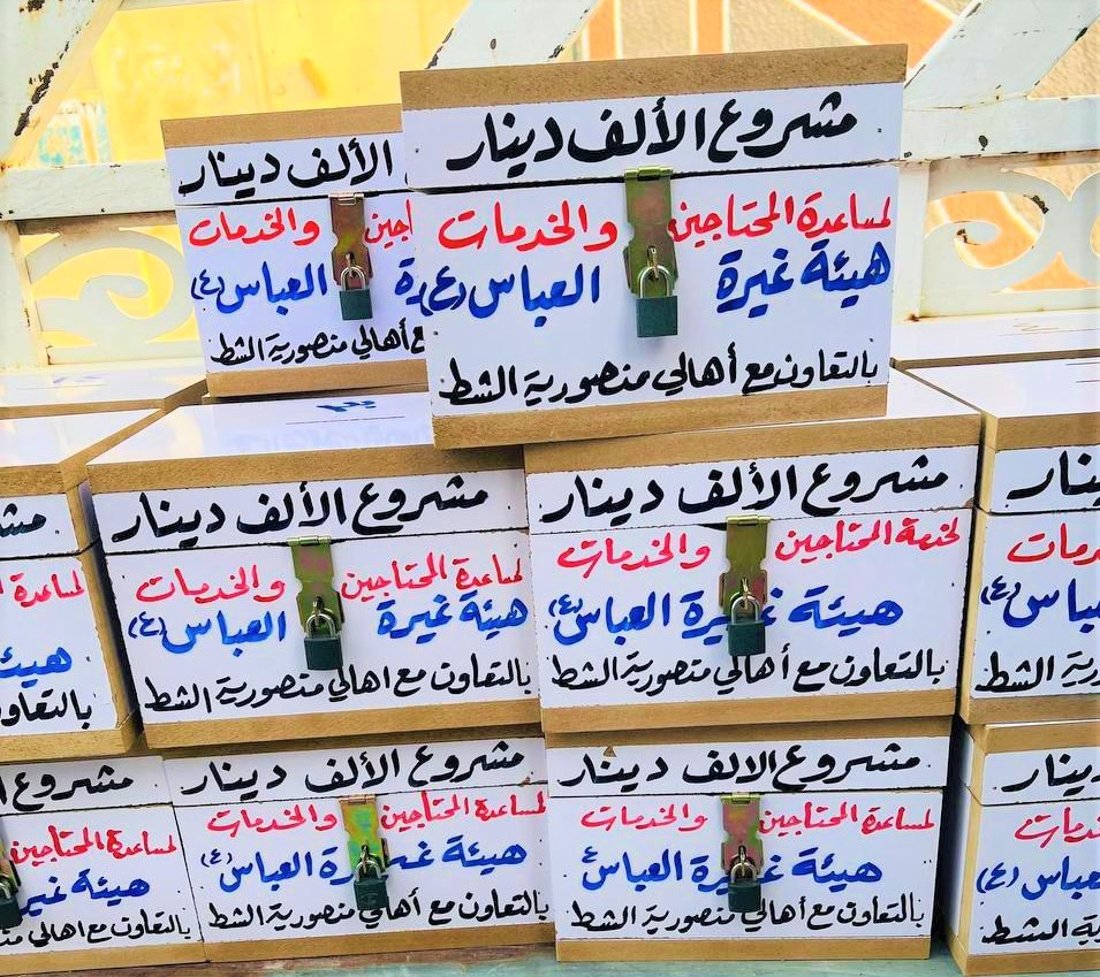 الألف دينار
اجين والخدمات
العباس (ع)
مع أهالي منصورية الشط
مشروع الألف دينار
لمساعدة المحتاجين والخدمات
هيئة غيرة العباس (ع)
بالتعاون مع أهالي منصورية الشط
لمساعدة
هيئ
بالتعاو
مشروع الألف دينار
لمساعدة المحتاجين والخدمات
هيئة غيرة العباس (ع)
بالتعاون مع اهالي منصورية الشط
مشروع الألف دينار
لخدمة المحتاجين والخدمات
هيئة غيرة العباس (ع)
بالتعاون مع أهالي منصورية الشط
ينار
دمات
عباس (ع)
رية الشط
مشروع ا
لمساعدة المحتاجين
هيئة غير
بالتعاون مع اهالي من
مشروع الألف دينار
لمساعدة المحتاجين والخدمات
هيئة غيرة العباس (ع)
بالتعاون مع أهالي منصورية الشط
مشروع الالف دينار
لمساعدة المحتاجين والخدمات
هيئة غيرة العباس ع
بالتعاون مع أهالي منصورية الشط
دينار
دمات
لعباس (ع)
ية الشط